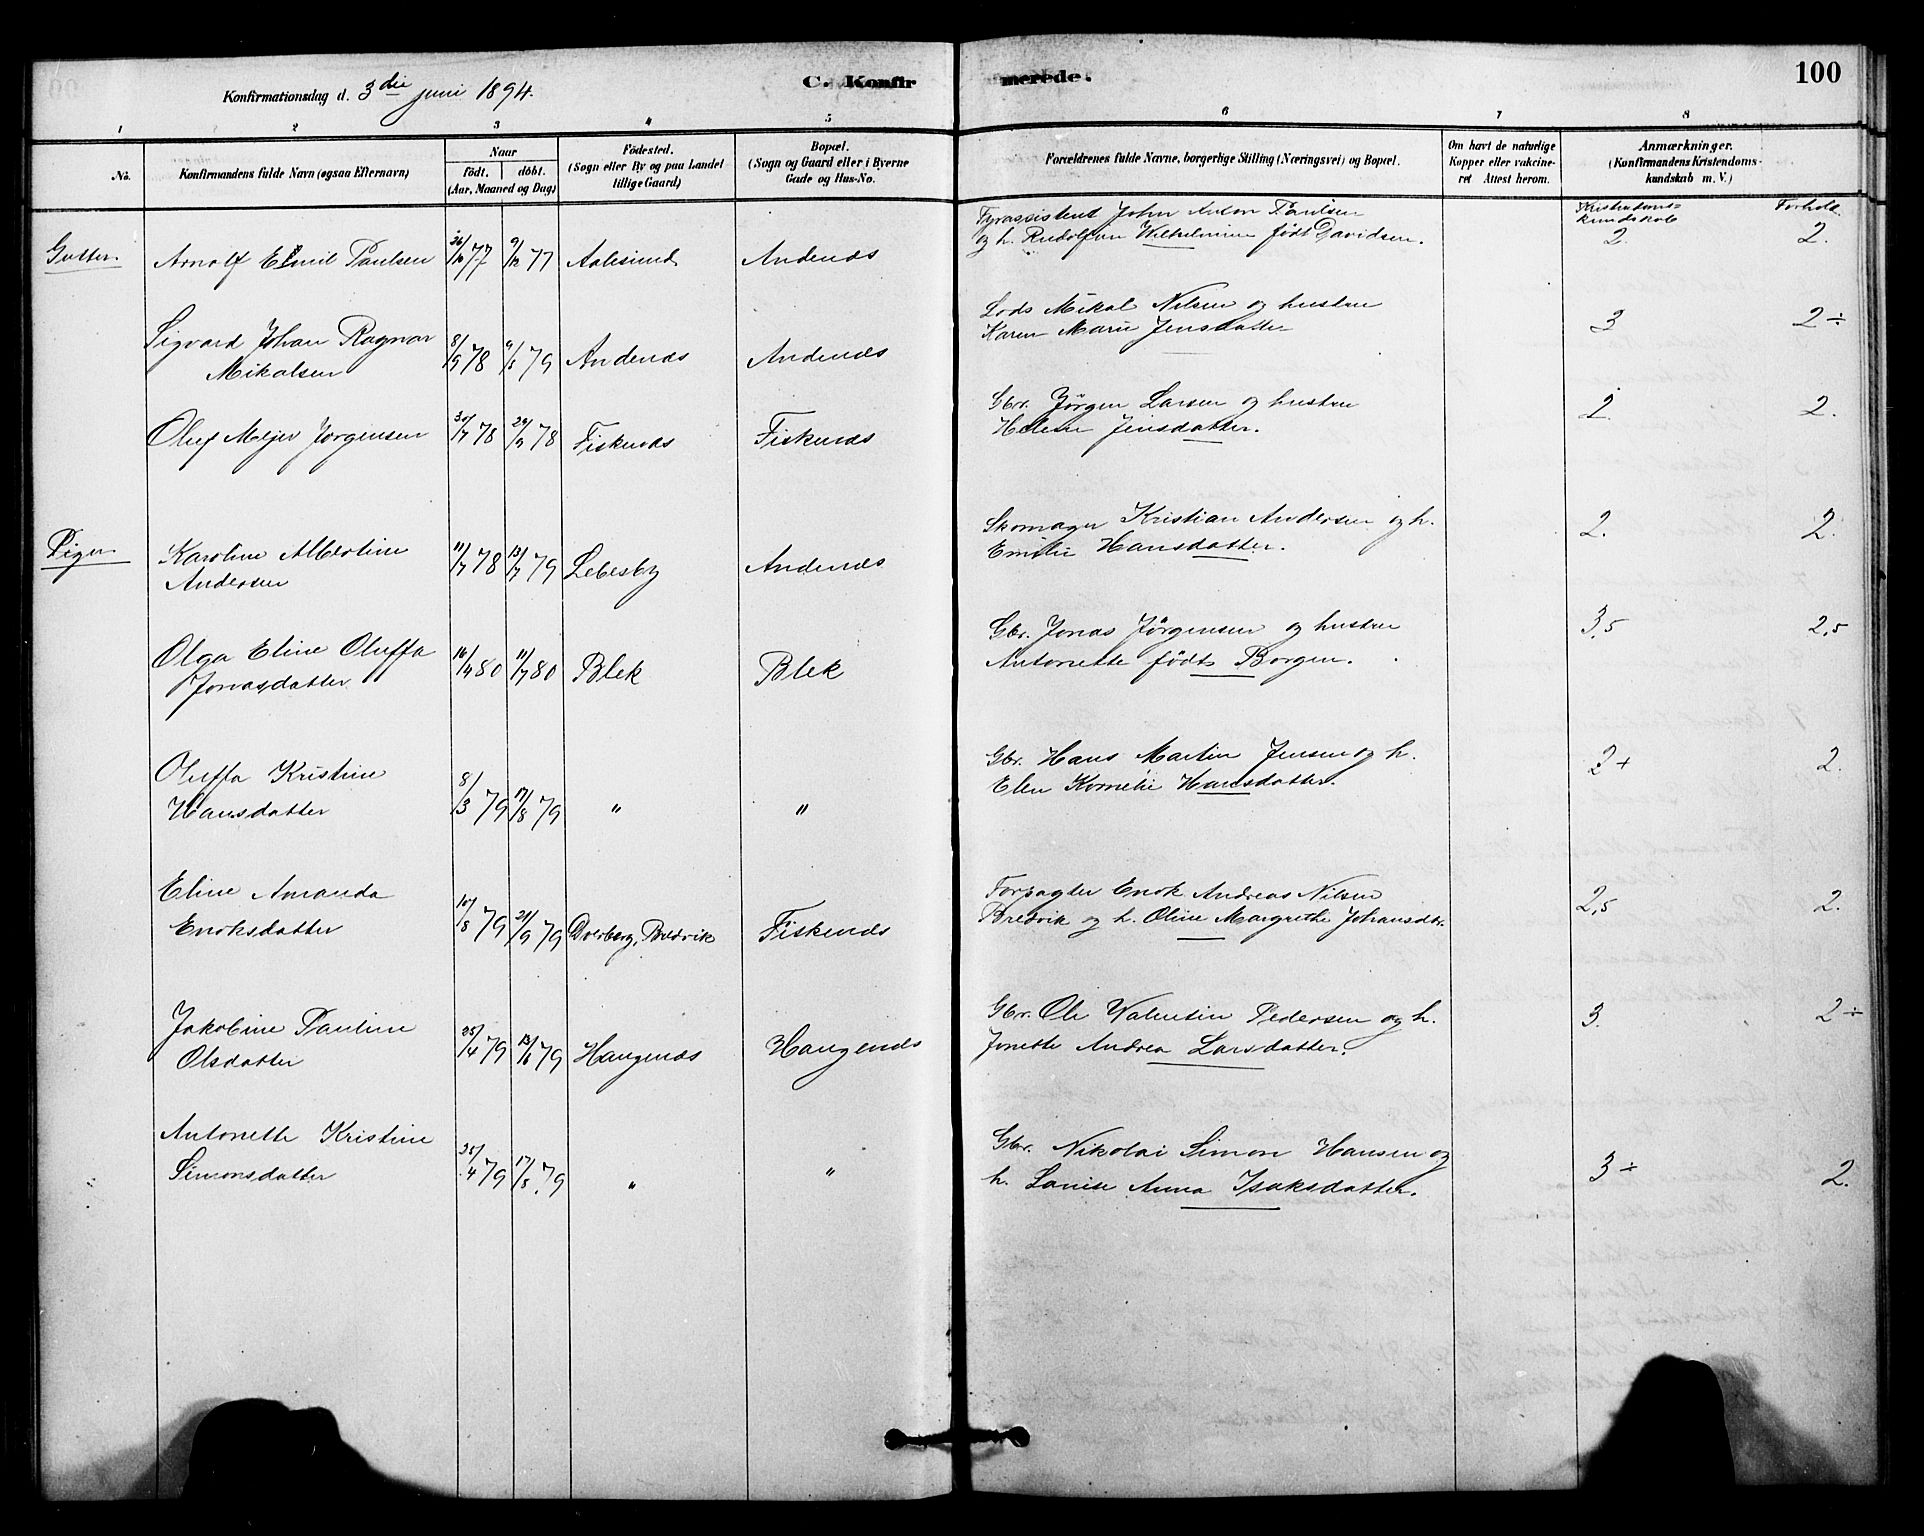 Konfirmationsdag d. 3die juni 1894.
C. Konfirmerede.
100
1 2 3 4 5 6 7 8
No.
Konfirmandens fulde Navn (ogsaa Efternavn)
Naar
födt. döbt.
(Aar, Maaned og Dag)
Födested.
(Sogn eller By og paa Landet
tillige Gaard)
Bopæl.
(Sogn og Gaard eller i Byerne
Gade og Hus-No.
Forældrenes fulde Navne, borgerlige Stilling (Næringsvei) og Bopæl.
Om havt de naturlige
Kopper eller vakcine-
ret Attest herom.
Anmærkninger.
(Konfirmandens Kristendoms-
kundskab m. V.)
Kristendoms-
kundskab
Forhold.
Gutter.
Arnolf Emil Paulsen 26/10 77 9/12 77 Aalesund Andenæs
Fyrassistent John Anton Paulsen
og h. Rudolfine Wilhelmine födt Davidsen.
2. 2.
Sigvard Johan Ragnvar
Mikalsen 8/9 78 79 Andenæs Andenæs
Lods Mikal Nilsen og hustru
Karen Marie Jensdatter
3 2÷
Oluf Mejer Jorgensen 30/7 78 29/9 78 Fiskenæs Fiskenæs
Gbr. Jörgen Larsen og hustru
Helene Jensdatter.
2 2.
Piger
Karoline Albertine
Andersen 11/7 78 13/7 79 Lebesby Andenæs
Skomager Kristian Andersen og h.
Emilie Hansdatter.
2. 2.
Olga Eline Oluffa
Jonasdatter 16/4 80 11/7 80 Blek Blek
Gbr. Jonas Jörgensen og hustru
Antonette födt Borgen.
3,5 2,5
Oluffa Kristine
Hansdatter 8/3 79 17/8 79 " "
Gbr. Hans Martin Jensen og h.
Elen Kornelie Hansdatter.
2+ 2.
Eline Amanda
Enoksdatter 10/8 79 21/9 79 Dverberg, Bredvik Fiskenæs
Forpagter Enok Andreas Nilsen
Bredvik og h. Oline Margrethe Johansdtr.
2,5 2.
Jakobine Pauline
Olsdatter 25/4 79 79 Haugenæs Haugenæs
Gbr. Ole Valentin Pedersen og h.
Jonette Andrea Larsdatter.
3. 2÷
Antonette Kristine
Simonsdatter 25/4 79 17/8 79 " "
Gbr. Nikolai Simon Hansen og
h. Lovise Anna Isaksdatter.
3÷ 2.